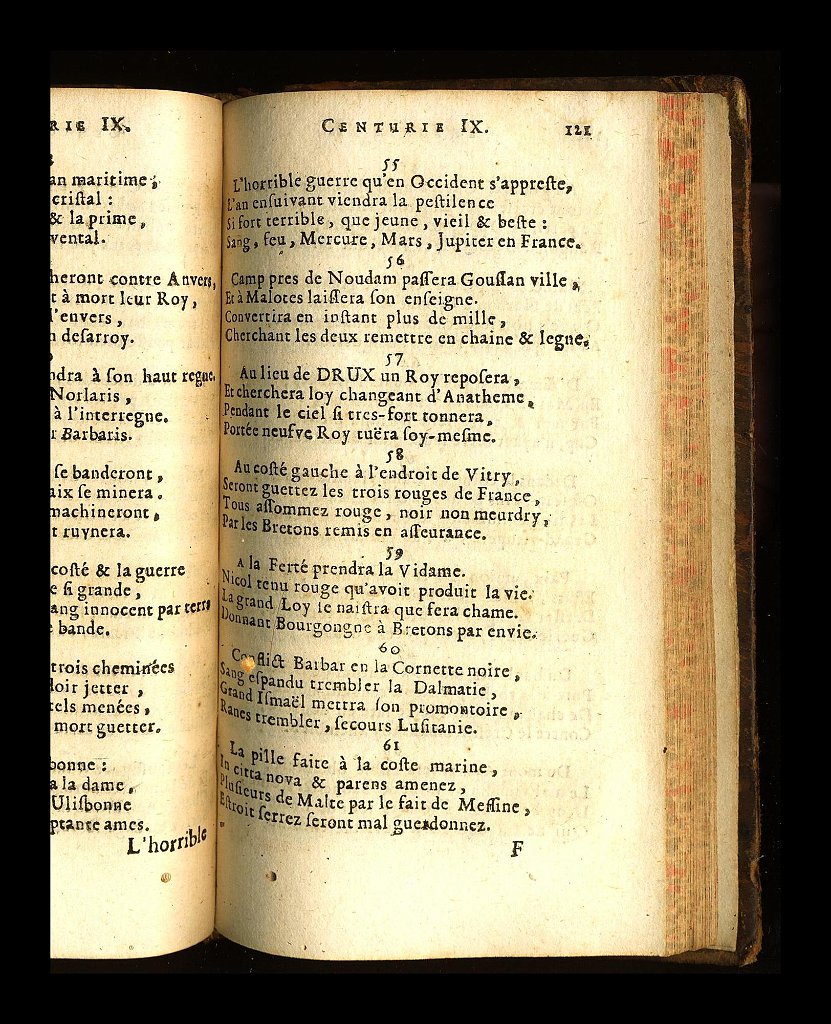 RIE IX.
an maritime;
cristal :
& la prime,
vental.
heront contre Anvers,
t à mort leur Roy,
l'envers,
n desarroy.
ndra à son haut regne.
Norlaris,
à l'interregne.
r Barbaris.
se banderont,
aix se minera.
machineront,
t ruynera.
costé & la guerre
e si grande,
ang innocent par terre
e bande.
trois cheminées
loir jetter,
tels menées,
mort guetter.
bonne :
a la dame,
Ulisbonne
ptante ames.
L'horrible
CENTURIE IX. 121
55
L'horrible guerre qu'en Occident s'appreste,
L'an ensuivant viendra la pestilence
Si fort terrible, que jeune, vieil & beste :
Sang, feu, Mercure, Mars, Jupiter en France.
56
Camp pres de Noudam passera Goussan ville,
Et à Malotes laissera son enseigne.
Convertira en instant plus de mille,
Cherchant les deux remettre en chaine & legne.
57
Au lieu de DRUX un Roy reposera,
Et cherchera loy changeant d'Anatheme,
Pendant le ciel si tres-fort tonnera,
Portée neufve Roy tuëra soy-mesme.
58
Au costé gauche à l'endroit de Vitry,
Seront guettez les trois rouges de France,
Tous assommez rouge, noir non meurdry,
Par les Bretons remis en asseurance.
59
A la Ferté prendra la Vidame.
Nicol tenu rouge qu'avoit produit la vie.
La grand Loy se naistra que fera chame.
Donnant Bourgongne à Bretons par envie.
60
Conflict Barbar en la Cornette noire,
Sang espandu trembler la Dalmatie,
Grand Ismaël mettra son promontoire,
Ranes trembler, secours Lusitanie.
61
La pille faite à la coste marine,
In citta nova & parens amenez,
Plusieurs de Malte par le fait de Messine,
Estroit serrez seront mal guerdonnez.
F